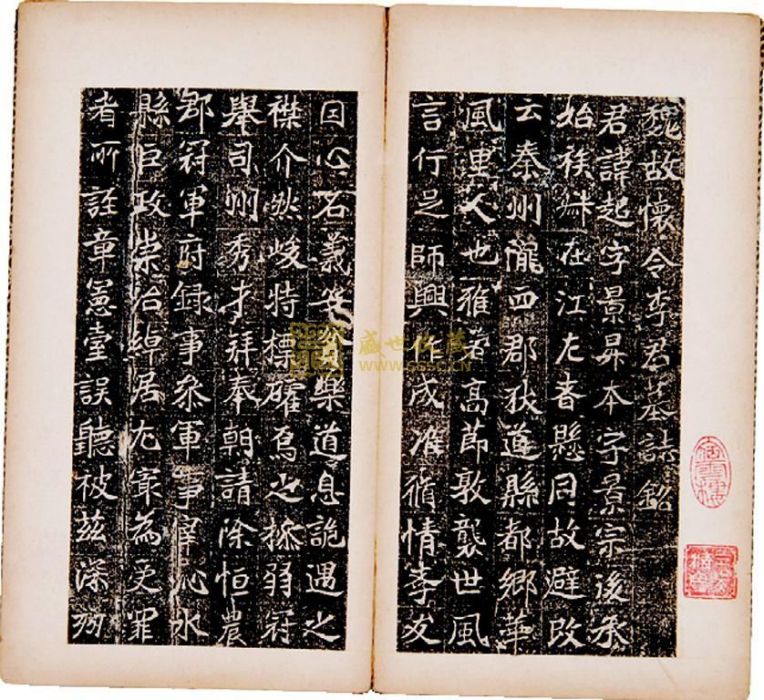 魏故懷令李君墓誌銘
君諱超字景昇本字景宗後承
始族叔在江左者懸同故避改
云秦州隴西郡狄道縣都鄉華
風里人也雅著高節敦襲世風
言行足師興作成准循情孝友
因心名義安貧樂道息詭遇之
襟介然峻特標確焉之操弱冠
舉司州秀才拜奉朝請除恒農
郡冠軍府錄事參軍事宰沁水
縣臣政崇治綽居尤最為受罪
者所詿章憲臺誤聽被茲深劾
盛世收藏
www.sssc.cn